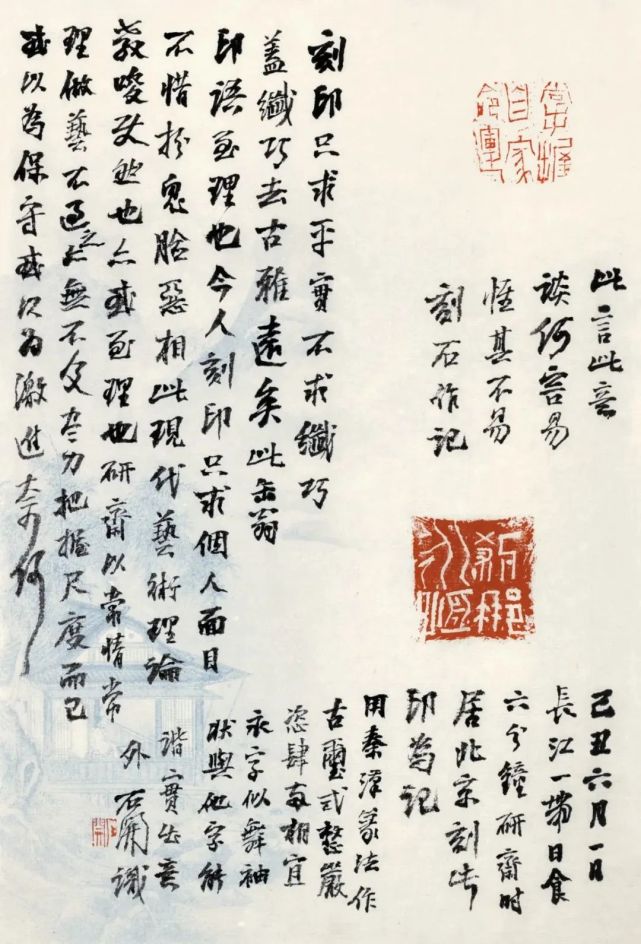 掌握
自家
命運
此言此意
談何容易
惟其不易
刻石作記
刻印只求平實不求纖巧
蓋纖巧去古雅遠矣此缶翁
印語至理也今人刻印只求個人面目
不惜扮鬼臉惡相此現代藝術理論
教唆使然也亦或至理也研齋以常情常
理做藝不過之亦無不及盡力把握尺度而已
或以為保守或以為激進奈何
剎那
永恆
己丑六月一日
長江一帶日食
六分鐘研齋時
居北京刻此
印為記
用秦漢篆法作
古璽式整嚴
恣肆兩相宜
永字似舞袖
狀與他字能
諧實出意
外 石開識
石開